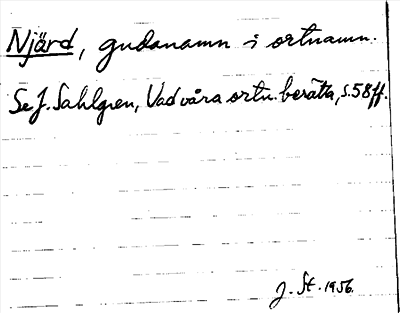 Njärd, gudanamn i ortnamn.
Se J. Sahlgren, Vad våra ortn. berätta, s. 58 ff.
J. St. 1956.